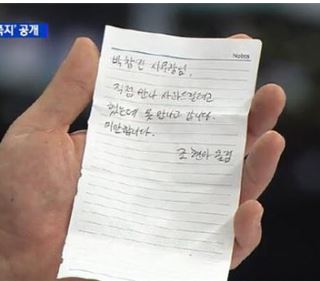 쪽지' 공개
Notes
박창진 사무장님.
직접 만나 사과드릴려고
했는데 못 만나고 갑니다.
미안합니다.
조현아 올림